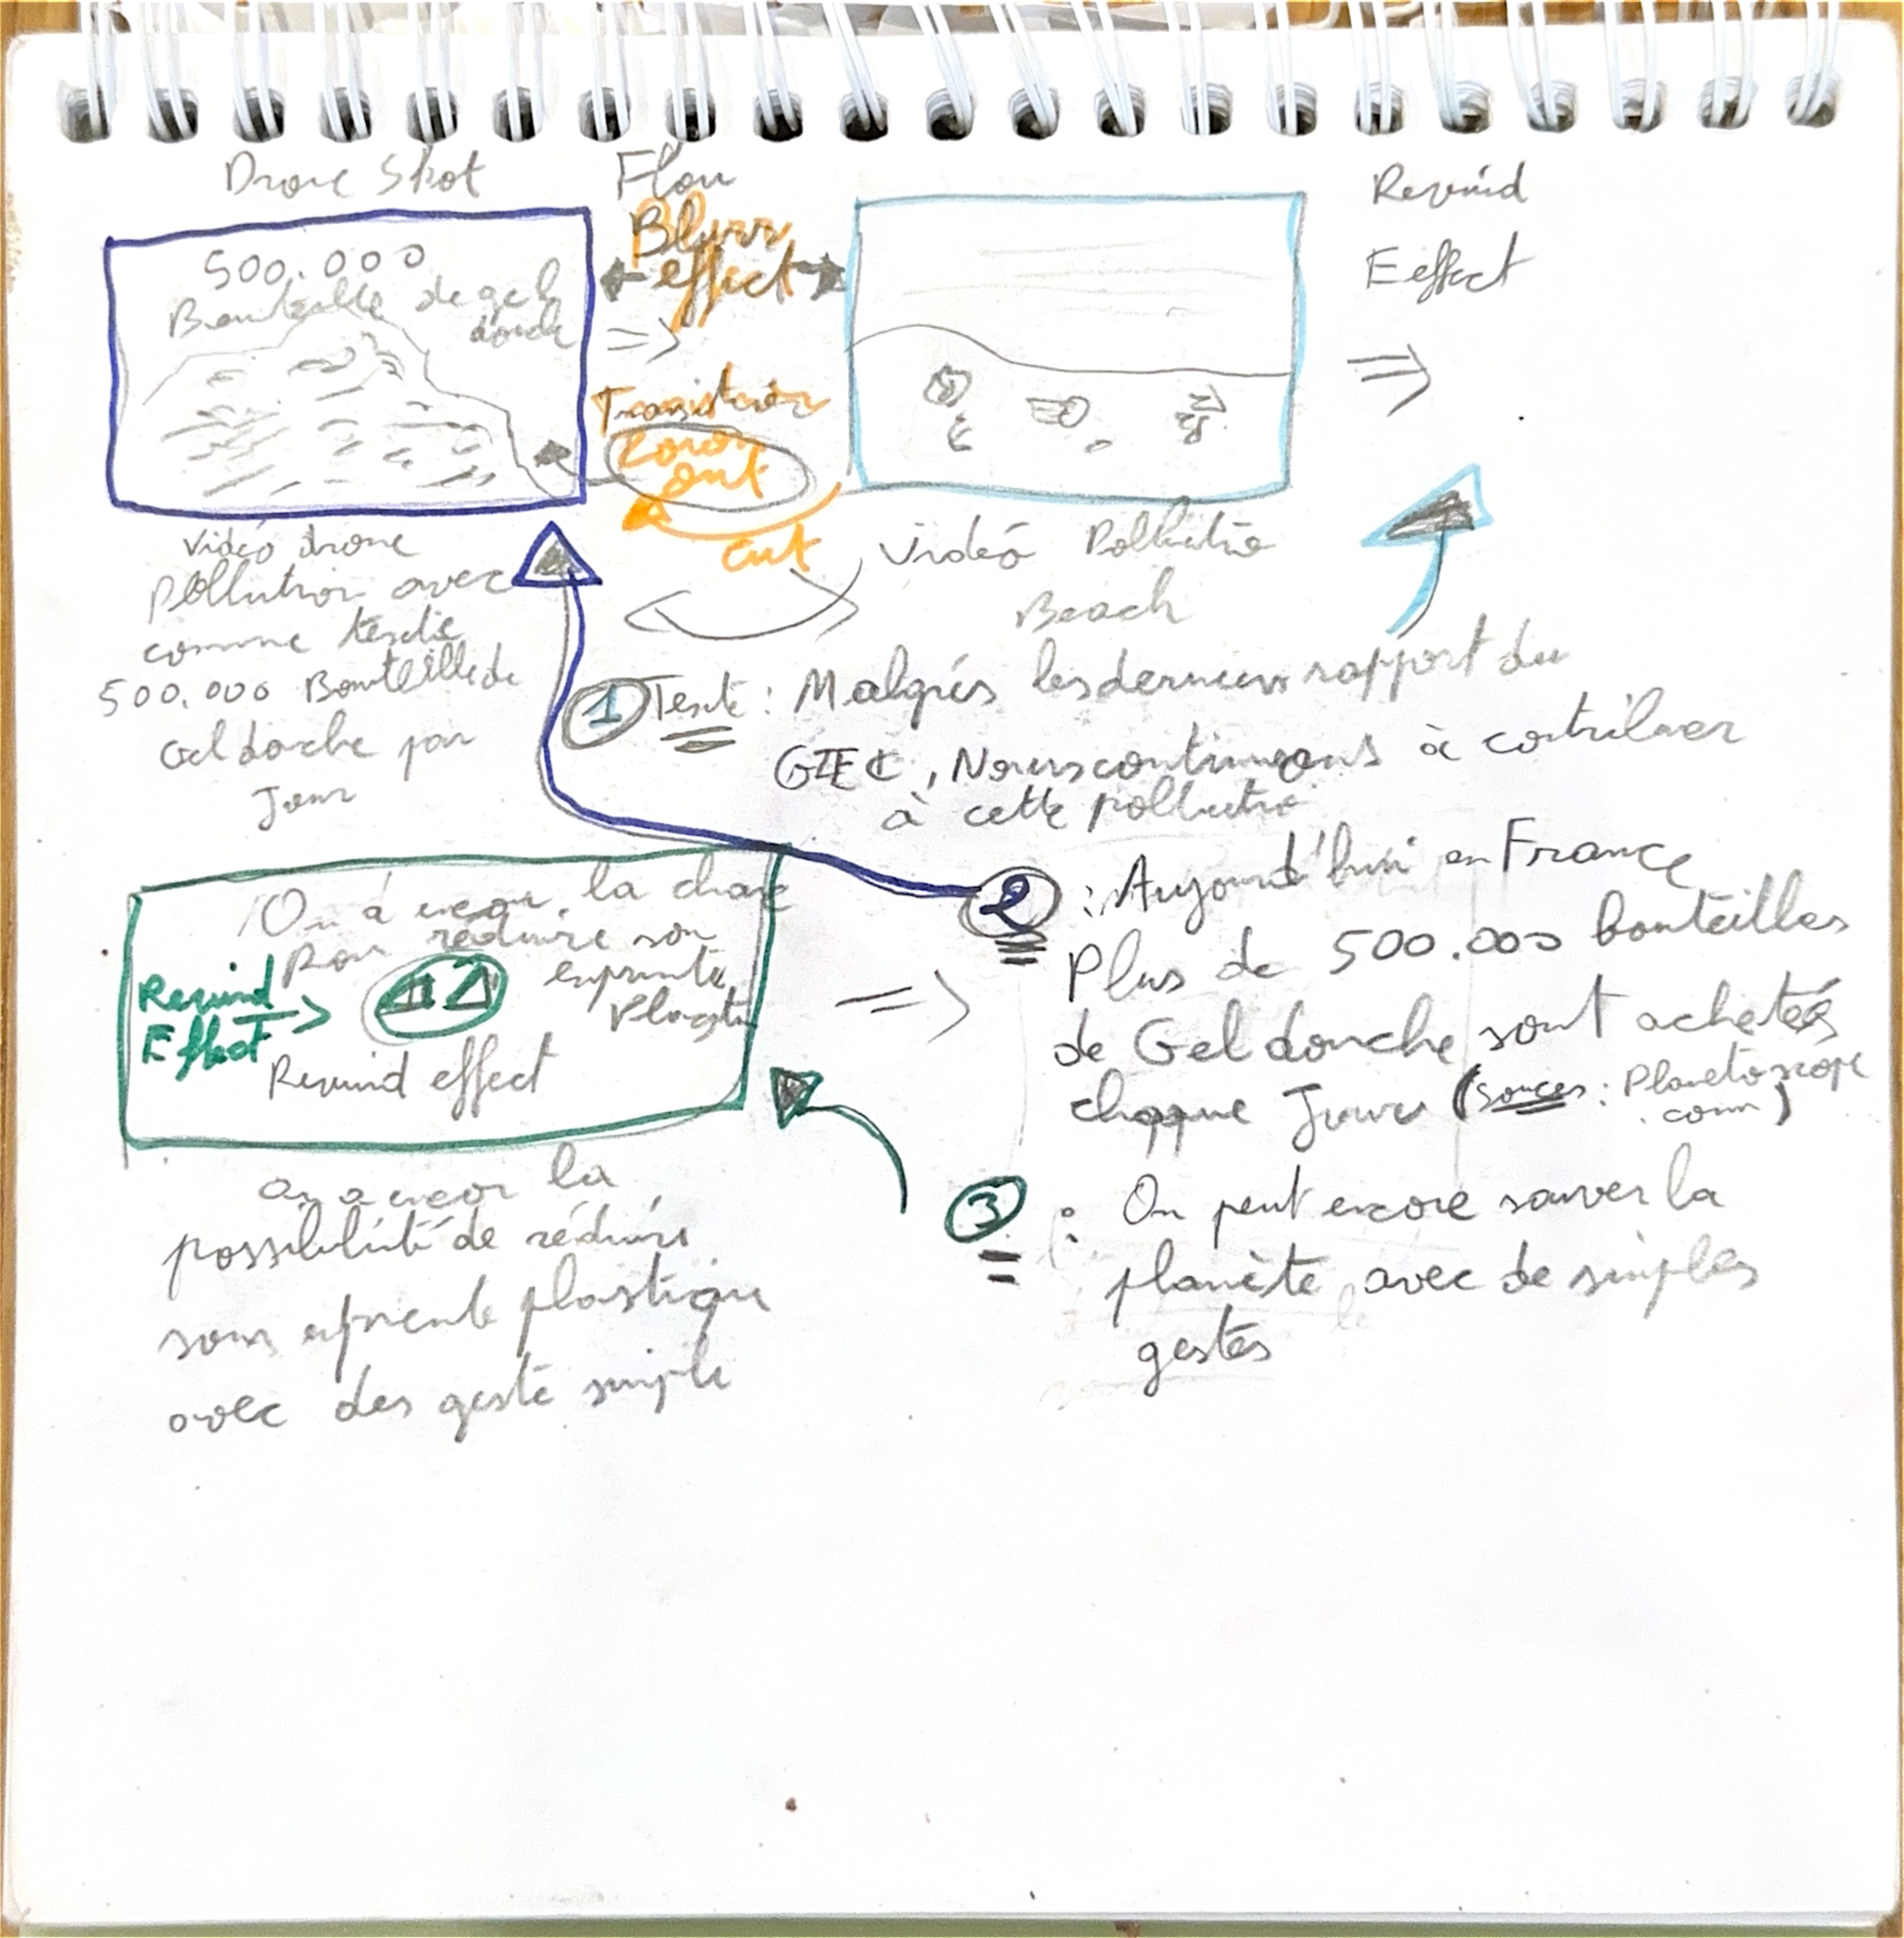 Drone Shot
500.000
Bouteille de gel
douche
Vidéo drone
pollution avec
comme texte
500.000 Bouteille de
Gel douche par
Jour
Flou
Blurr
effect
Transition
Zoom
out
cut
Vidéo Pollution
Beach
Rewind
Eeffect
1 Texte : Malgrés les derniers rapport du
GIEC, Nous continuons à contribuer
à cette pollution
2 : Aujourd'hui en France
Plus de 500.000 bouteilles
de Gel douche sont achetés
chaque Jours (Souces : Planetoscope
.com)
On à encor la chance
Pour réduire son
emprunte
Plastique
Rewind
Effect
Rewind effect
on a encor la
possibilité de réduire
son emprente plastique
avec des geste simple
3 : On peut encore sauver la
planète avec de simples
gestes